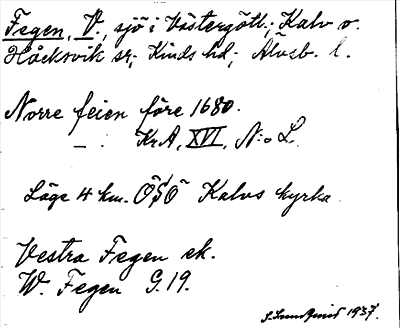 Fegen, V., sjö i Västergötl.; Kalv o.
Håcksvik sr; Kinds hd; Älvsb. l.
Norre feien före 1680.
— . KrA, XVI, N:o L.
Läge 4 km. OSO Kalvs kyrka
Vestra Fegen ek.
W. Fegen G.19.
S. Lundquist 1937.